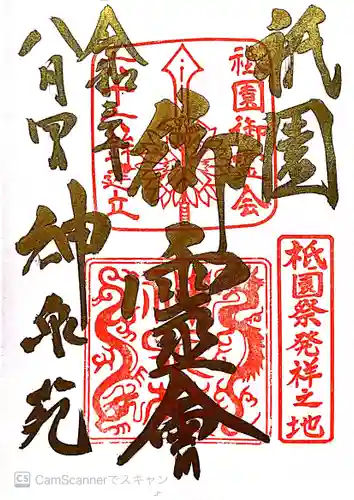 祇園
御靈會
令和
八月
神泉苑
祇園御霊会
建立
祇園祭発祥之地
CS CamScannerでスキャン